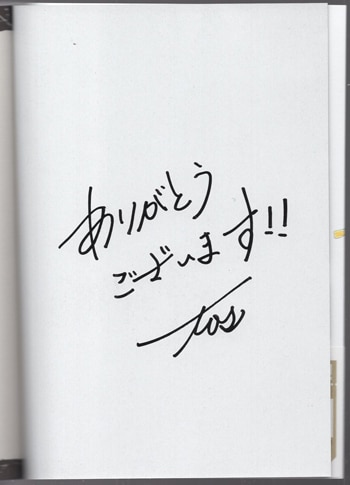 ありがとう
ございます!!
tos